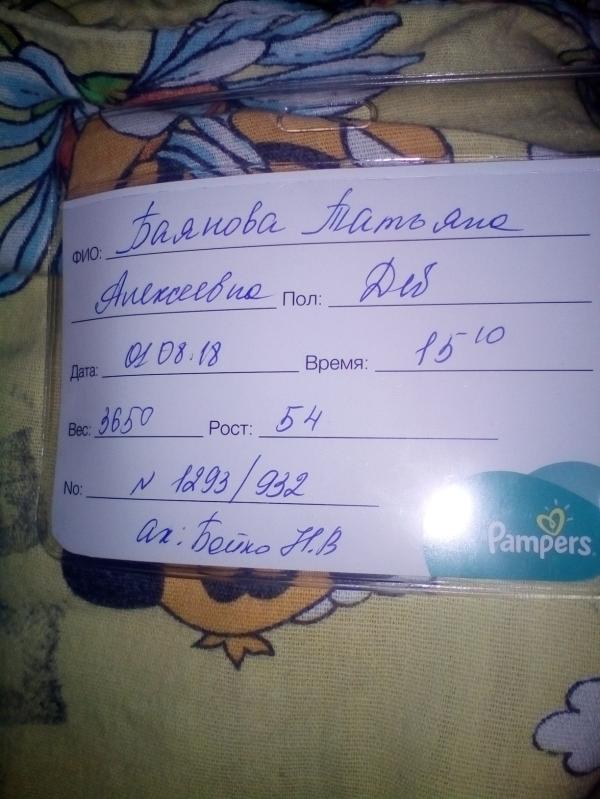 ФИО: Баянова Татьяна
Алексеевна Пол: Дев
Дата: 01 08.18 Время: 15 10
Вес: 3650 Рост: 54
No: N 1293/932
Ак: Бойко Н.В
Pampers